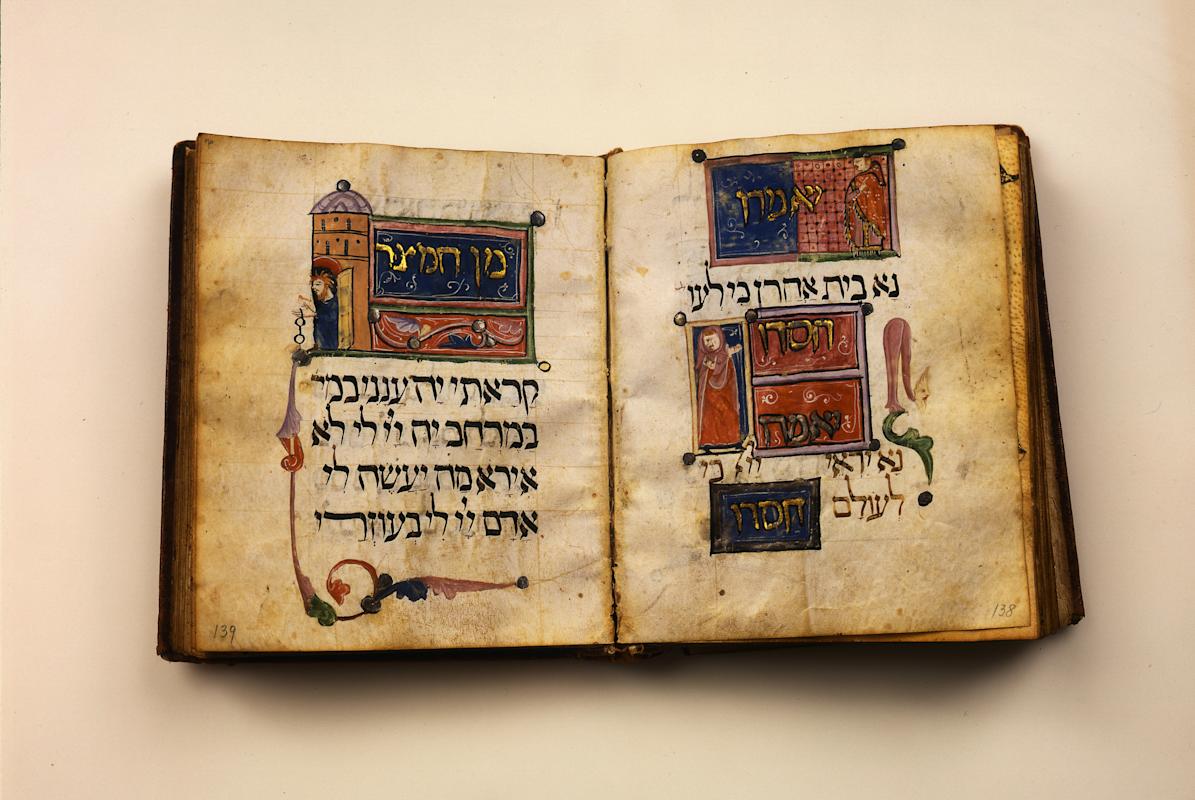 יאמרו
נא בית אהרן כי לעו
חסדו
יאמרו
נא יראי ייי כי
לעולם חסדו
138
מן המיצר
קראתי יה ענני במר
במרחב יה ייי לי לא
אירא מה יעשה לי
אדם ייי לי בעוזרי
139